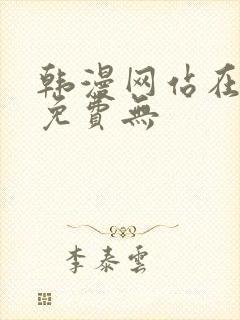 韩漫网站在
免費無
李泰雲